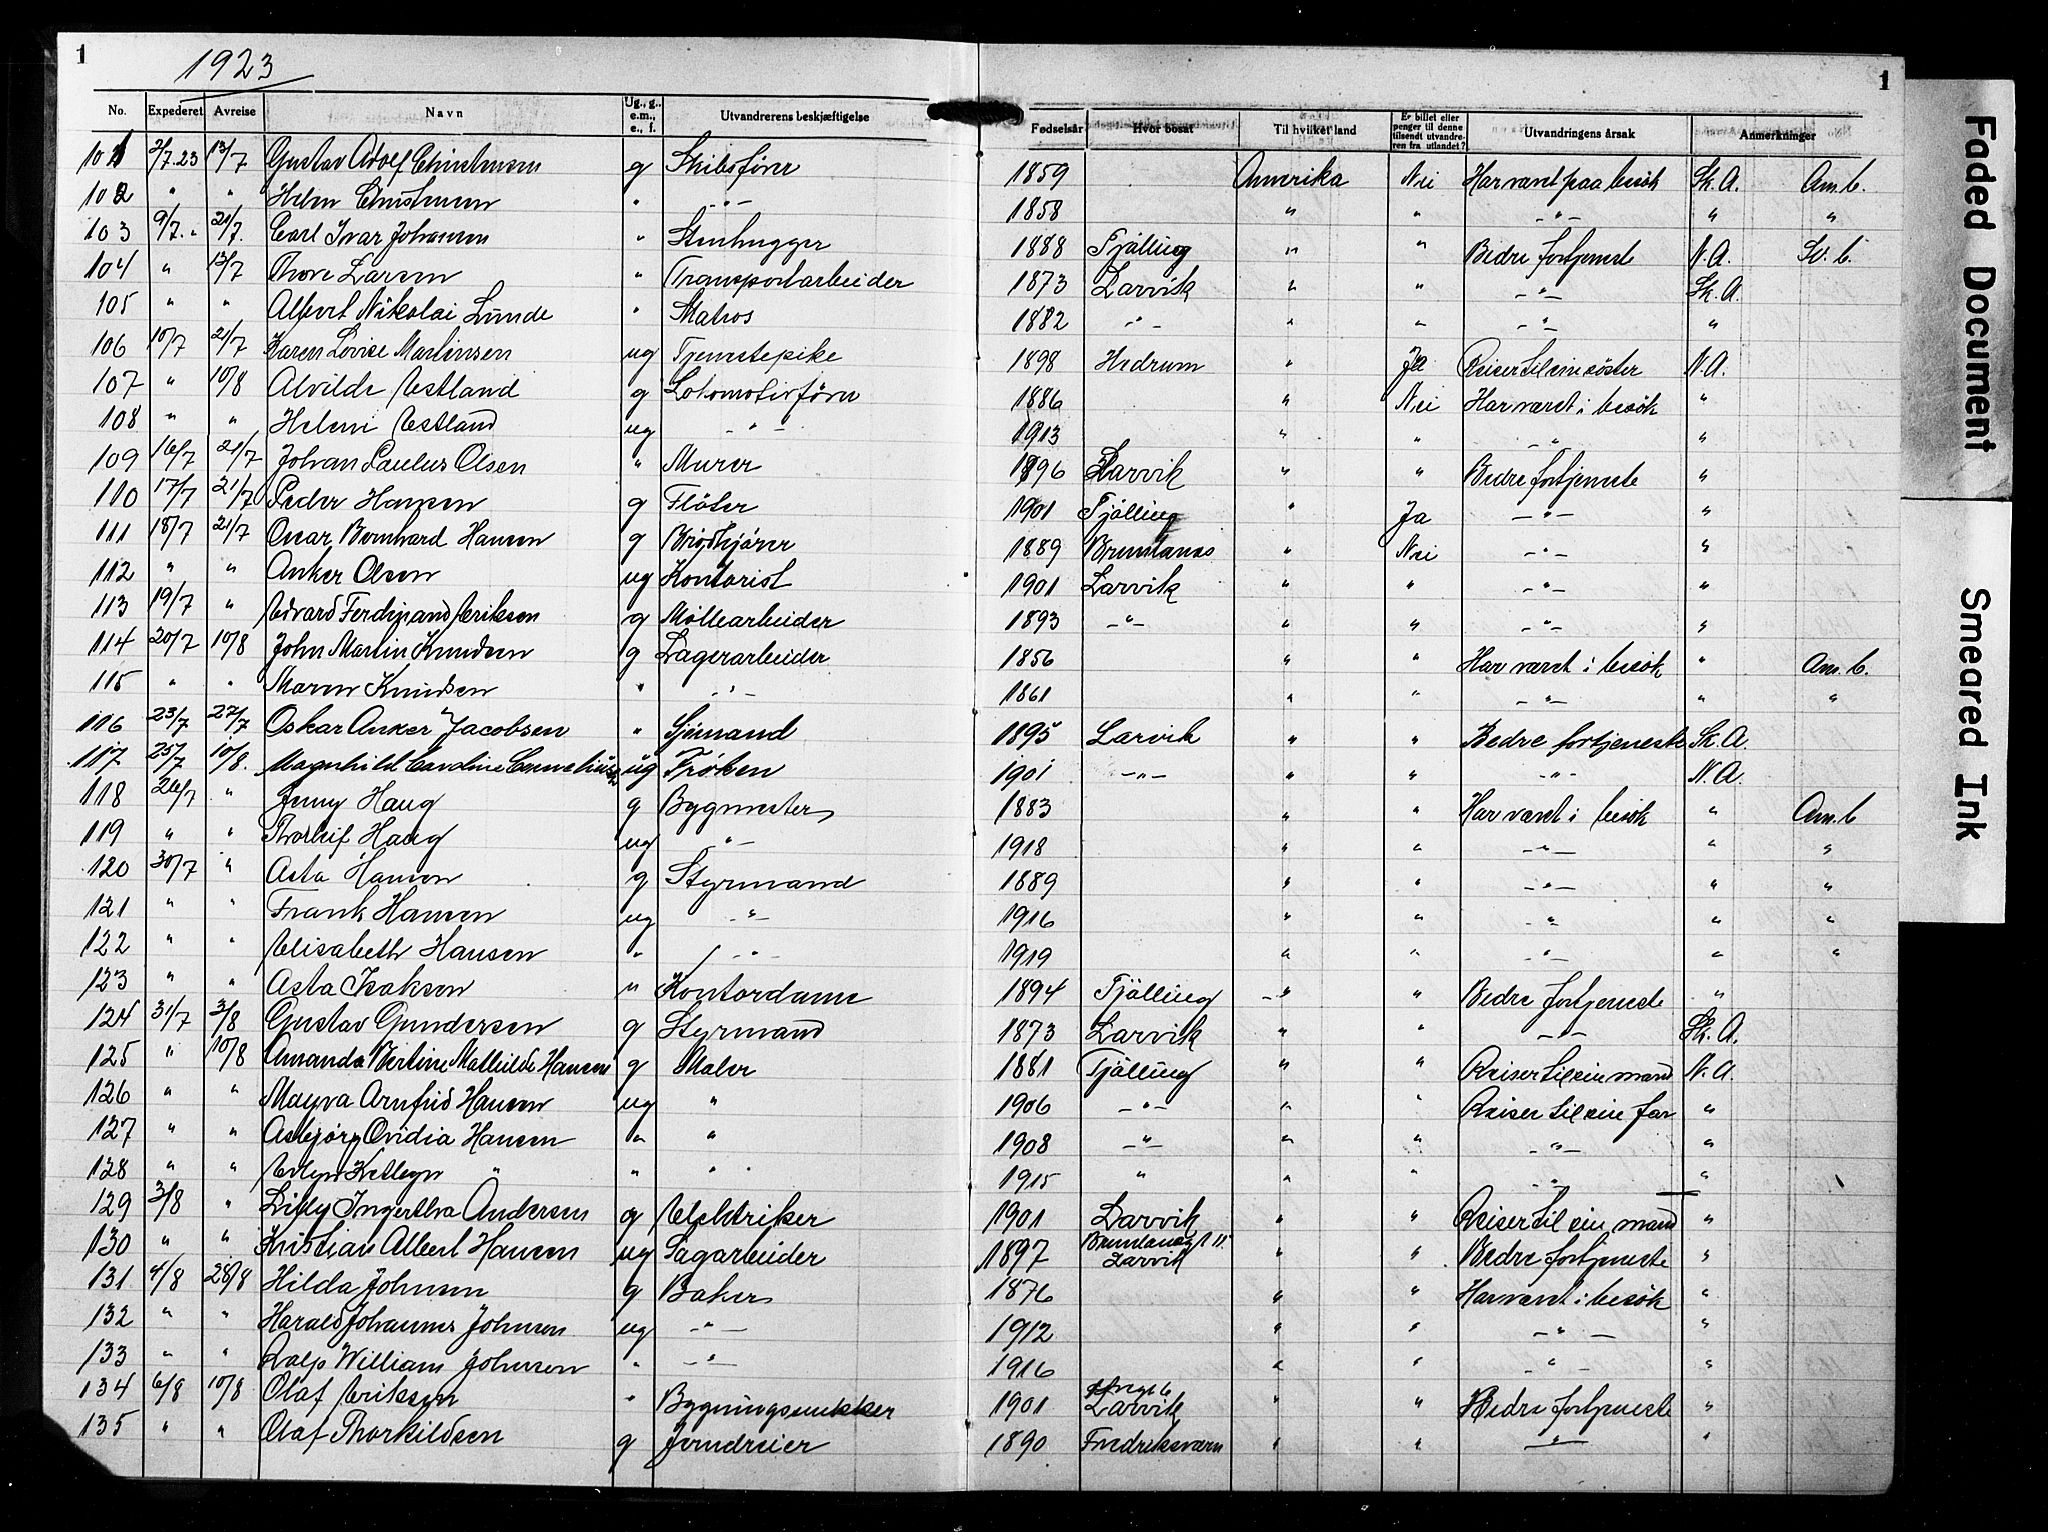 1
1923
1
No. Expederet Avreise Navn Ug., g., e.m., e., f. Utvandrerens beskjæftigelse Fødselsår Hvor bosat Til hvilket land Er billet eller penger til denne tilsendt utvandreren fra utlandet? Utvandringens årsak Anmerkninger
101 2/7.23 13/7 Gustav Adolf Christensen g Skibsfører 1859 Amerika Nei Har været paa besøk Sk. A. Am. b.
102 " " Helen Christensen " -"- 1858 " " -"- " "
103 9/7. " 21/7. Carl Ivar Johansen " Stenhugger 1888 Tjølling " " Bedre fortjeneste N. A. Sv. b.
104 " 13/7 Thore Larsen " Transportarbeider 1873 Larvik " " -"- Sk. A.
105 " " Albert Nikolai Lunde " Matros 1882 -"- " " -"- "
106 10/7 21/7 Karen Lovise Martinsen ug Tjenestepike 1898 Hedrum " Ja Reiser til sin søster N. A.
107 " 10/8 Alvilde Estland g Lokomotivfører 1886 " Nei Har været i besök "
108 " " Helen Estland ug -"- 1913 " " -"- "
109 16/7 21/7 Johan Paulus Olsen " Murer 1896 Larvik " " Bedre fortjeneste "
110 17/7 21/7 Peder Hansen g Fløter 1901 Tjølling " Ja -"- "
111 18/7 21/7 Oscar Bernhard Hansen g Brødkjører 1889 Brunlanes " Nei -"- "
112 " " Anker Olsen ug Kontorist 1901 Larvik " " -"- "
113 19/7 " Edvard Ferdinand Eriksen g Møllearbeider 1893 -"- " " -"- "
114 20/7 10/8 John Martin Knudsen g Lagerarbeider 1856 " " Har været i besök " Am. b.
115 " " Maren Knudsen " -"- 1861 " " -"- " "
116 23/7 27/7 Oskar Anker Jacobsen " Sjømand 1895 Larvik " " Bedre fortjeneste Sk. A.
117 25/7 10/8. Magnhild Caroline Corneliussen ug Frøken 1901 -"- " " -"- N. A.
118 26/7 " Jenny Haug g Bygmester 1883 " " Har været i besök " Am. b
119 " " Thorleif Haug ug -"- 1918 " " -"- " "
120 30/7 " Asta Hansen g Styrmand 1889 " " -"- " "
121 " " Frank Hansen ug -"- 1916 " " -"- " "
122 " " Elisabeth Hansen " -"- 1919 " " -"- " "
123 " " Asta Isaksen " Kontordame 1894 Tjølling -"- " Bedre fortjeneste "
124 31/7 3/8 Gustav Gundersen g Styrmand 1873 Larvik " " -"- Sk. A.
125 " 10/8 Amanda Bertine Mathilde Hansen g Maler 1881 Tjølling " " Reiser til sin mand N. A.
126 " " Mayva Arnfrid Hansen ug " 1906 -"- " " Reiser til sin far "
127 " " Asbjørg Ovidia Hansen " " 1908 -"- " " -"- "
128 " " " " " 1915 " " " -"- "
129 3/8 " Lilly Ingertha Andersen g Elektriker 1901 Larvik " " Reiser til sin mand "
130 " " Kristian Albert Hansen ug Sagarbeider 1897 Brunlanes Larvik " " Bedre fortjeneste "
131 4/8 28/8 Hilda Johnsen g Baker 1876 " " Har været i besök "
132 " " Harald Johannes Johnsen ug -"- 1912 " " -"- "
133 " " Ralp William Johnsen " -"- 1916 " " -"- "
134 6/8 10/8 Olaf Eriksen " Bygningssnekker 1901 Larvik " " Bedre fortjeneste "
135 " " Olaf Thorkildsen g Jerndreier 1890 Fredriksværn " " -"- "
Faded Document
Smeared Ink